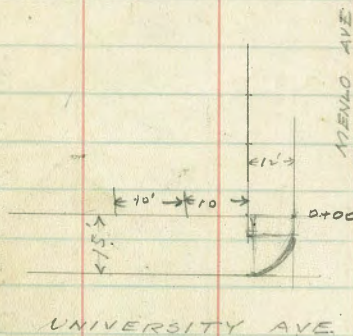 MENLO AVE
12'
10' 10
0+00
15'
UNIVERSITY AVE.